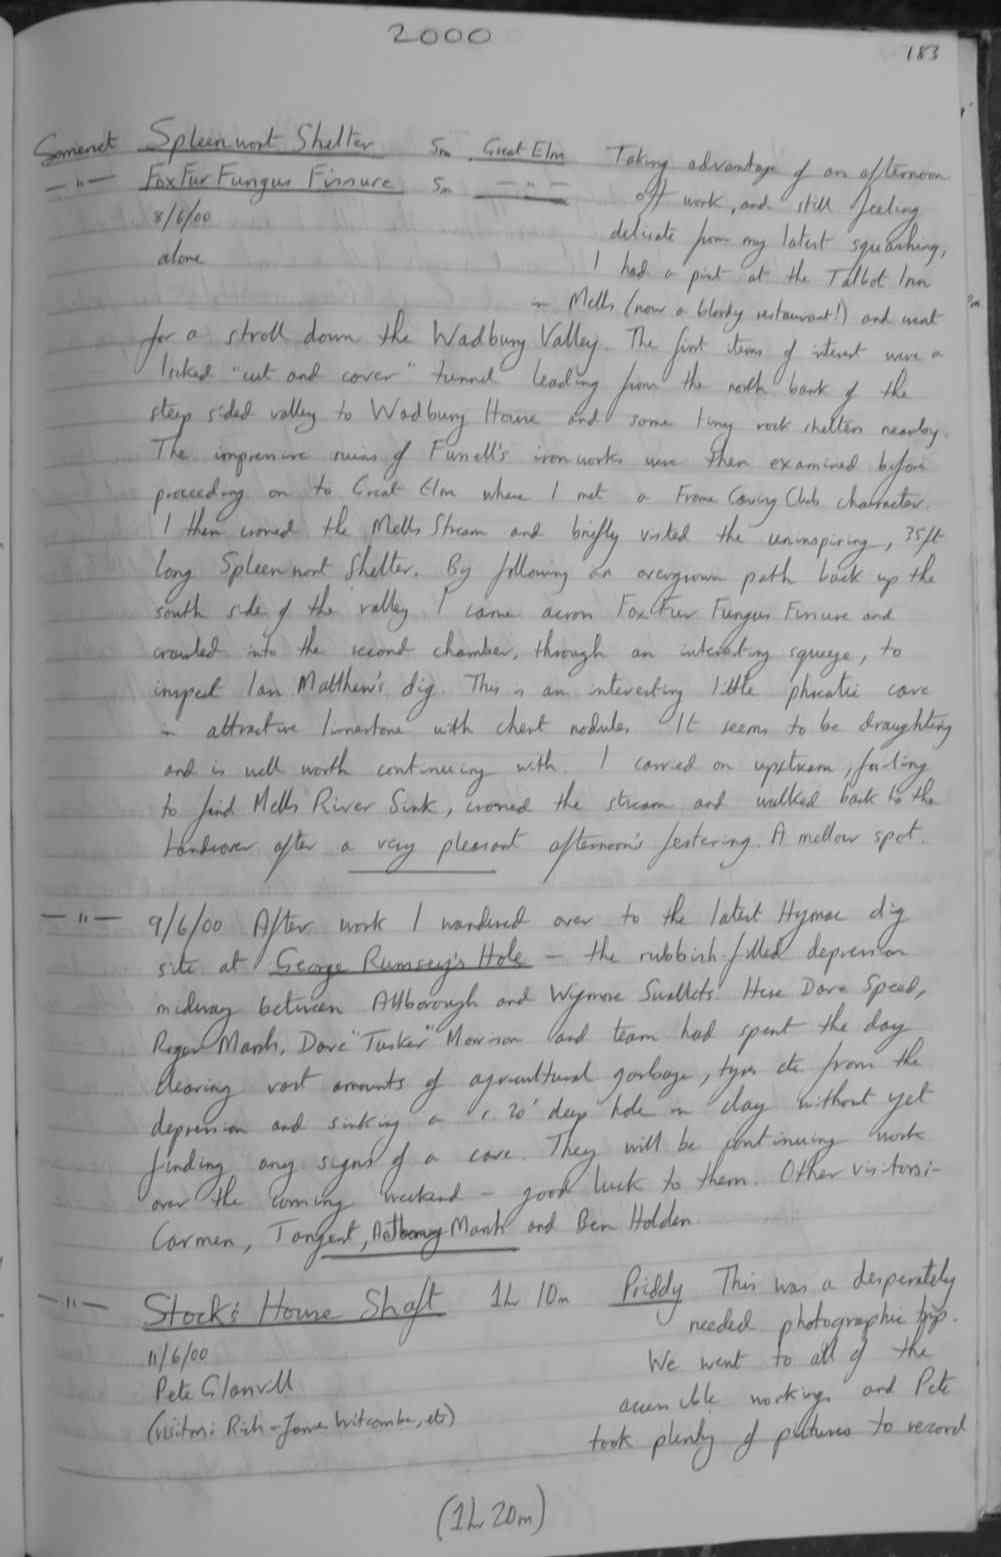 2000
183
Somerset Spleenwort Shelter 5m Great Elm Taking advantage of an afternoon
—"— Fox Fur Fungus Fissure 5m —"— off work, and still feeling
8/6/00 delicate from my latest squashing,
alone I had a pint at the Talbot Inn
in Mells (now a bloody restaurant!) and went
for a stroll down the Wadbury Valley. The first items of interest were a
locked "cut and cover" tunnel leading from the north bank of the
steep sided valley to Wadbury House and some tiny rock shelters nearby.
The impressive ruins of Fussell's ironworks were then examined before
proceeding on to Great Elm where I met a Frome Caving Club character.
I then crossed the Mells Stream and briefly visited the uninspiring, 35ft
long Spleenwort Shelter. By following an overgrown path back up the
south side of the valley I came across Fox Fur Fungus Fissure and
crawled into the second chamber, through an interesting squeeze, to
inspect Ian Matthew's dig. This is an interesting little phreatic cave
in attractive limestone with chert nodules. It seems to be draughting
and is well worth continuing with. I carried on upstream, failing
to find Mells River Sink, crossed the stream and walked back to the
Landrover after a very pleasant afternoon's festering. A mellow spot.
—"— 9/6/00 After work I wandered over to the latest Hymac dig
site at George Rumsey's Hole – the rubbish filled depression
midway between Attborough and Wigmore Swallets. Here Dave Speed,
Roger Marsh, Dave "Tusker" Morrison and team had spent the day
clearing vast amounts of agricultural garbage, tyres etc from the
depression and sinking a c. 20' deep hole in clay without yet
finding any signs of a cave. They will be continuing work
over the coming weekend – good luck to them. Other visitors:-
Carmen, Tangent, Anthony Marsh and Ben Holden.
—"— Stock's House Shaft 1h 10m Priddy This was a desperately
11/6/00 needed photographic trip.
Pete Glanvill We went to all of the
(visitors: Rich - James Witcombe, etc) accessible workings and Pete
took plenty of pictures to record
(1h 20m)